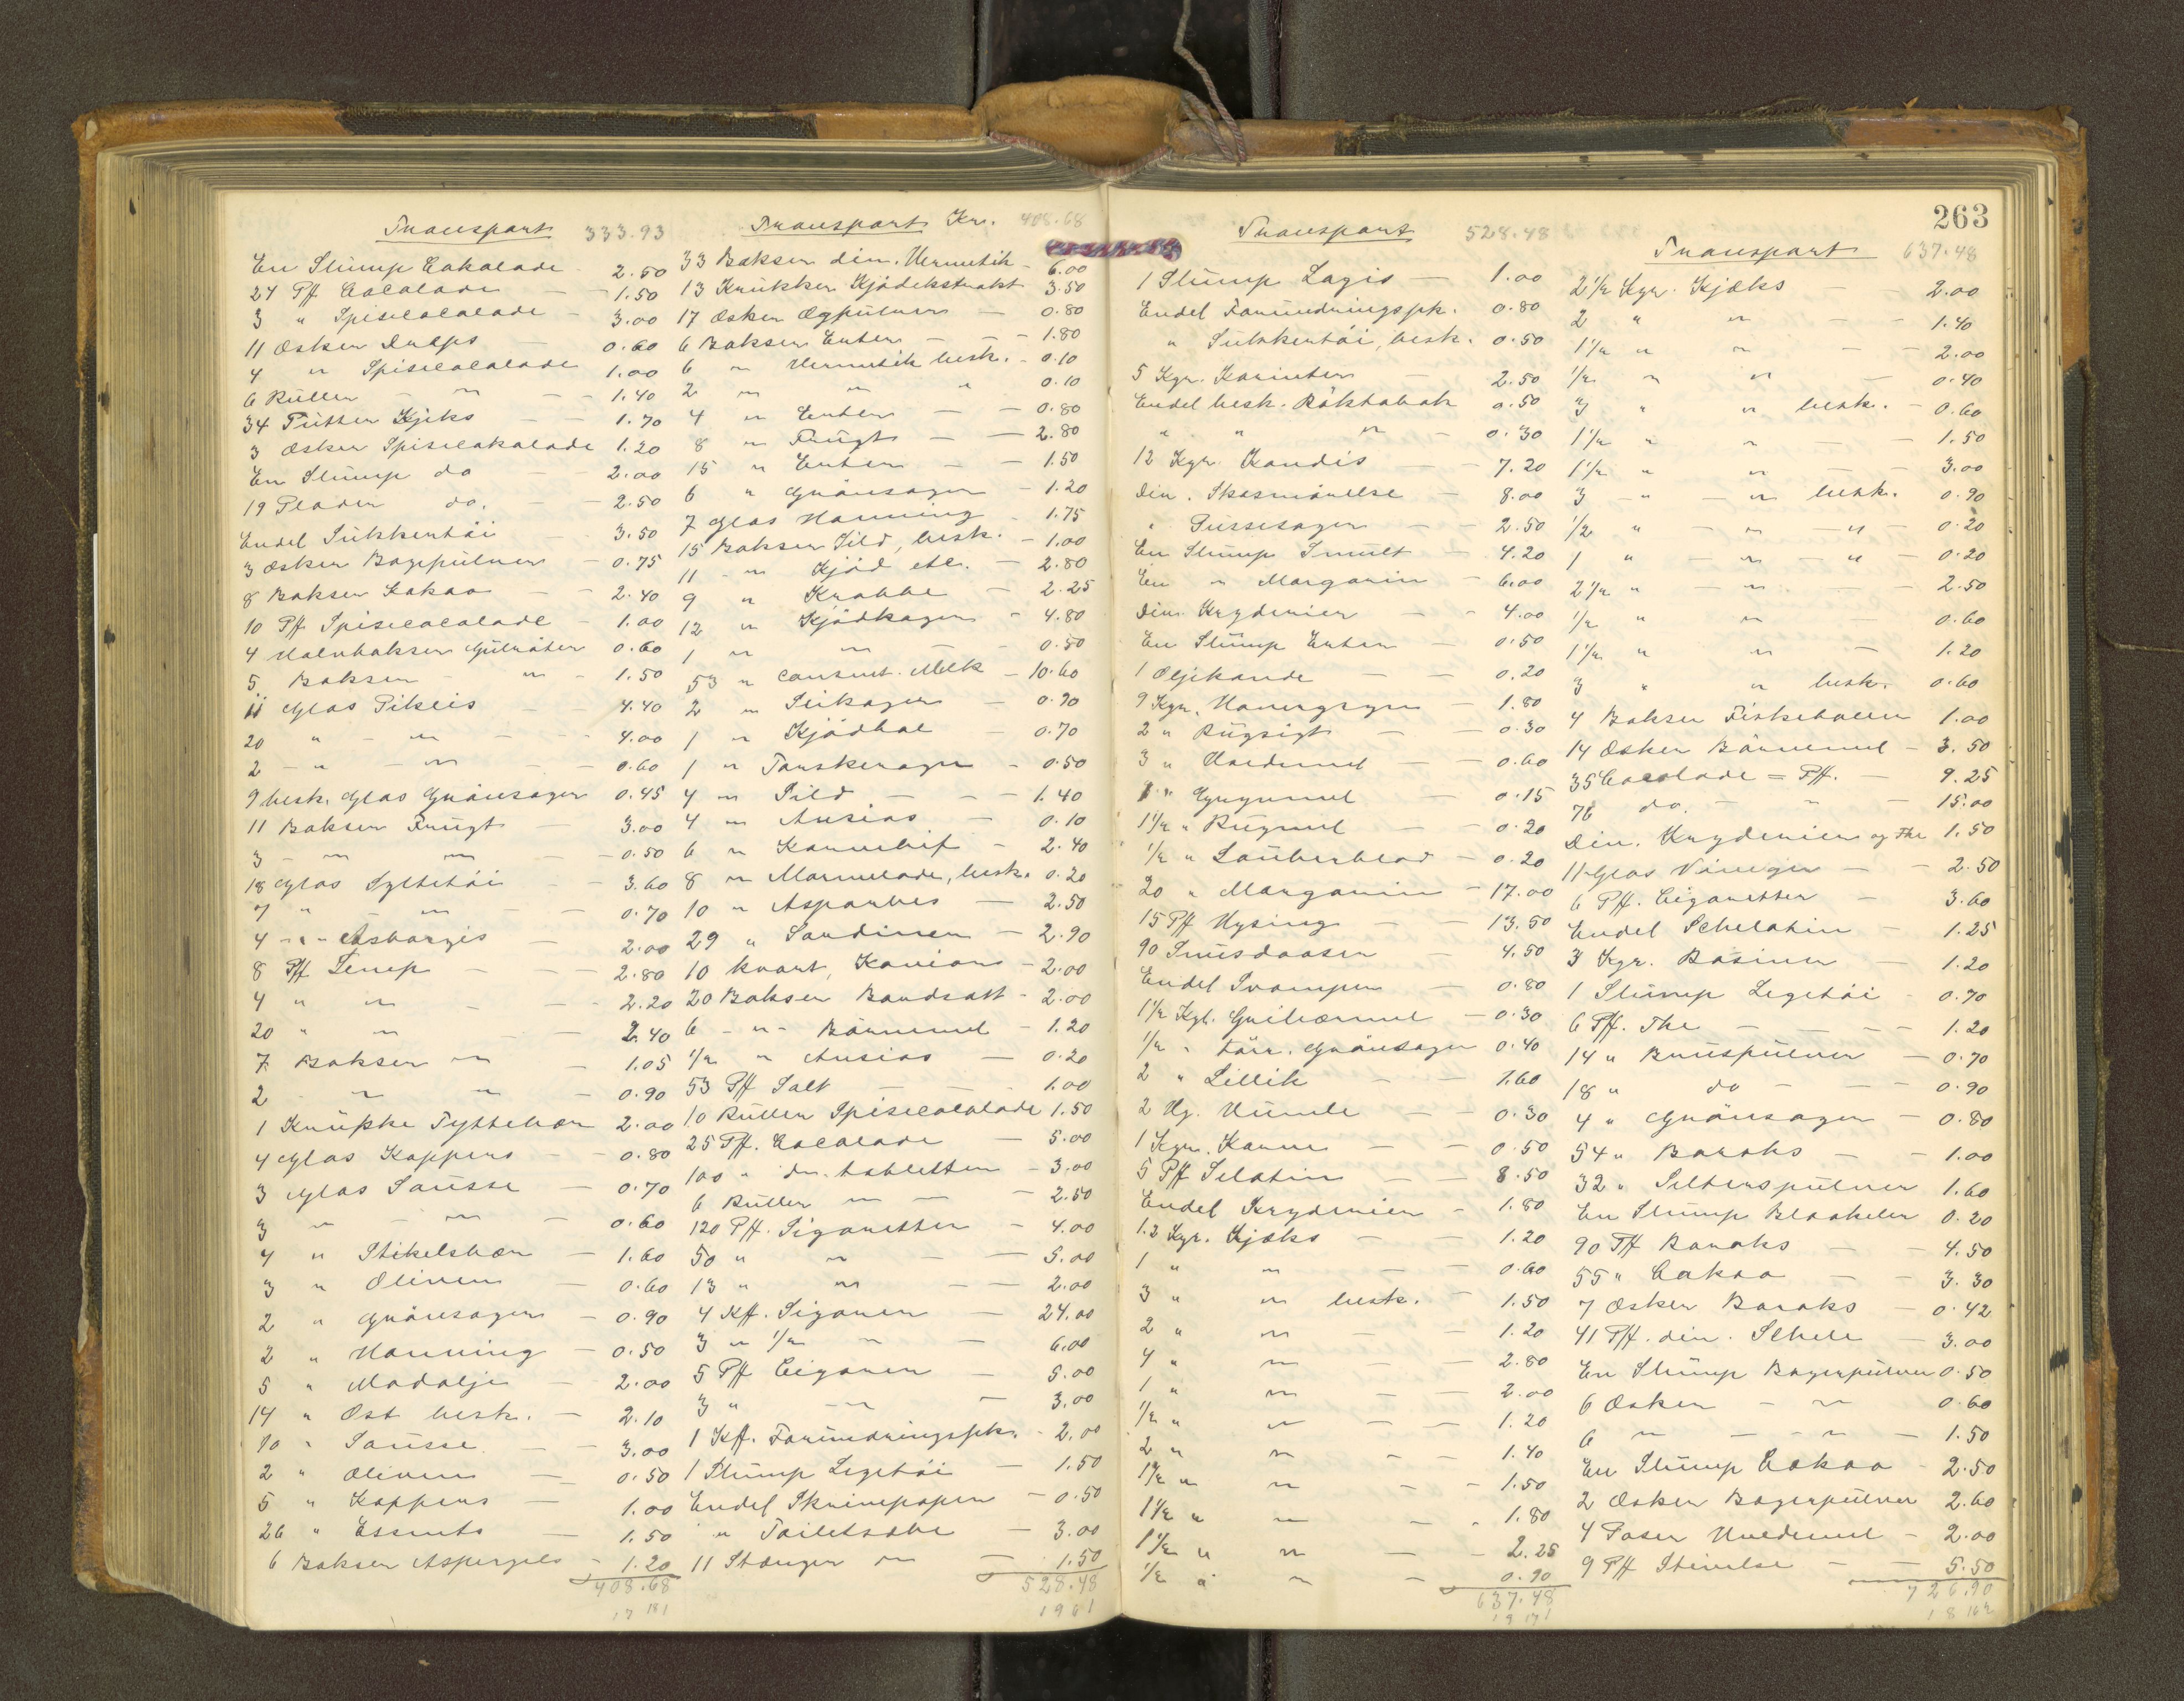 Transport 333.93
En Slump Cakalade 2.50
24 Pf Cacalade — 1.50
3 " Spisecacalade - 3.00
11 Æsker Drops — 0.60
4 " Spisecacalade 1.00
6 Ruller — " — 1.40
34 Tutter Kjeks — 1.70
3 Æsker Spisecakalade 1.20
En Slump do — 2.00
19 Plader do. — 2.50
Endel Sukkertöi — 3.50
3 Æsker Bagepulver — 0.75
8 Bokser Kakao — 2.40
10 Pf. Spisecacalade - 1.00
4 Halvbokser Gulröter 0.60
5 Bokser — " — 1.50
11 Glas Pikels — 4.40
20 " - " — 4.00
2 - " - " — 0.60
9 besk. Glas Grönsager 0.45
11 Bokser Frugt — 3.00
3 - " " — 0.50
18 Glas Syltetöi — 3.60
7 " " — 0.70
4 - " - Asbargis — 2.00
8 Pf Senep — 2.80
4 " " — 2.20
20 " " — 2.40
7 Bokser " — 1.05
2 " " — 0.90
1 Krukke Tyttebær 2.00
4 Glas Kappers — 0.80
3 Glas Sausse — 0.70
3 " - " — 0.60
4 " Stikelsbær — 1.60
3 " Oliven — 0.60
2 " Grönsager — 0.90
2 " Honning — 0.50
5 " Madolje — 2.00
14 " Ost besk. — 2.10
10 " Sausse — 3.00
2 " Oliven — 0.50
5 " Kappers — 1.00
26 " Essents — 1.50
6 Bokser Aspergels - 1.20
408.68
17 181
Transport Kr. 408.68
33 Bokser div. Hermetik - 6.00
13 Krukker Kjödekstrakt 3.50
17 Æsker Ægpulver — 0.80
6 Bokser Erter — 1.80
6 " Hermetik besk. - 0.10
2 " " " 0.10
4 " Erter — 0.80
8 " Frugt — 2.80
15 " Erter — 1.50
6 " Grönsager — 1.20
7 Glas Honning - 1.75
15 Bokser Sild, besk. - 1.00
11 - " Kjöd etc. — 2.80
9 " Krabbe — 2.25
12 " Kjödkager - 4.80
1 " " - 0.50
53 " consent. Melk — 10.60
2 " Seikager — 0.90
1 " Kjödbol — 0.70
1 " Torskerogn - 0.50
4 " Sild — 1.40
4 " Ansios — 0.10
6 " Karnebif - 2.40
8 " Marmelade, besk. 0.20
10 " Asparbes — 2.50
29 " Sardiner — 2.90
10 kvart, Kaviar — 2.00
20 Bokser Bandsatt - 2.00
6 - " - Börnemel - 1.20
1/2 " Ansios — 0.20
53 Pf Salt — 1.00
10 Ruller Spisecacalade 1.50
25 Pf. Cacalade — 5.00
100 " do. tabletten - 3.00
6 Ruller " — 2.50
120 Pf. Sigaretter - 4.00
50 " " — 5.00
13 " " — 2.00
4 Kff. Sigarer — 24.00
3 " 1/2 " — 6.00
5 Pf Cigarer — 5.00
3 " — " — 3.00
1 Kff. Forundringspk. - 2.00
1 Slump Legetöi — 1.50
Endel Skrivepapir — 0.50
" Toiletsæbe — 3.00
11 Stænger " — 1.50
528.48
1961
Transport 528.48
1 Slump Lagis — 1.00
Endel Forundringspk. 0.80
" Sukkertöi, besk. 0.50
5 Kgr. Korinter — 2.50
Endel besk. Röktobak 0.50
" " " - 0.30
12 Kgr. Kandis — 7.20
Div. Skosmörelse — 8.00
" Pussesager — 2.50
En Slump Smult — 4.20
En " Margarin — 6.00
Div. Kryderier — 4.00
En Slump Erter — 0.50
1 Oljekande — 0.20
9 Kgr. Havregryn — 1.80
2 " Rugsigt — 0.30
3 " Hvedemel — 0.60
1 " Grynmel — 0.15
1 1/2 " Rugmel — 0.20
1/2 " Lauberblad — 0.20
20 " Margarin — 17.00
15 Pf Hysing — 13.50
90 Snusdaaser — 4.50
Endel Svamper — 0.80
1 1/2 Kgl. Gribærmel — 0.30
1/2 " törr. Grönsager 0.40
2 " Lillik — 1.60
2 Hg. Humle — 0.30
1 Kgr. Karve — 0.50
5 Pf Selatin — 8.50
Endel Kryderier - 1.80
1.2 Kgr. Kjæks — 1.20
1 " " — 0.60
3 " " besk. — 1.50
2 " " — 1.20
4 " " — 2.80
1 " " — 2.00
1/2 " " — 1.20
2 " " - 1.40
1 1/2 " " - 1.50
1 1/2 " " - 1.80
1 1/2 " " — 2.25
1/2 " " — 0.90
637.48
19 171
263
Transport 637.48
2 1/2 Kgr. Kjæks — 2.00
2 " " — 1.40
1 1/2 " " — 2.00
1/2 " " — 0.40
3 " " besk. - 0.60
1 1/2 " " — 1.50
1 1/2 " " — 3.00
3 - " - " besk. 0.90
1/2 " - " - " 0.20
1 " - " - " 0.20
2 1/2 " - " — 2.50
1/2 " " — 0.60
1 1/2 " " — 1.20
3 " " besk. 0.60
4 Bokser Fiskeboller 1.00
14 Æsker Börnemel - 3.50
35 Cacolade = Pf. — 9.25
76 do. - " - 15.00
Div. Kryderier og The 1.50
11 Glas Vineger — 2.50
6 Pf. Cigaretter — 3.60
Endel Schelatin — 1.25
3 Kgr. Rosiner — 1.20
1 Slump Legetöi - 0.70
6 Pf. The — 1.20
14 " Bruspulver — 0.70
18 " do — 0.90
4 " Grönsager — 0.80
54 " Boraks — 1.00
32 " Selterspulver 1.60
En Slump Blaakeler 0.20
90 Pf Boraks — 4.50
55 " Cakao — 3.30
7 Æsker Boraks — 0.42
41 Pf. div. Schele — 3.00
En Slump Bagerpulver 0.50
6 Æsker - " - 0.60
6 " — " — 1.50
En Slump Cakao - 2.50
2 Æsker Bagerpulver 2.60
4 Poser Hvedemel — 2.00
9 Pf Stivelse — 5.50
726.90
18 162